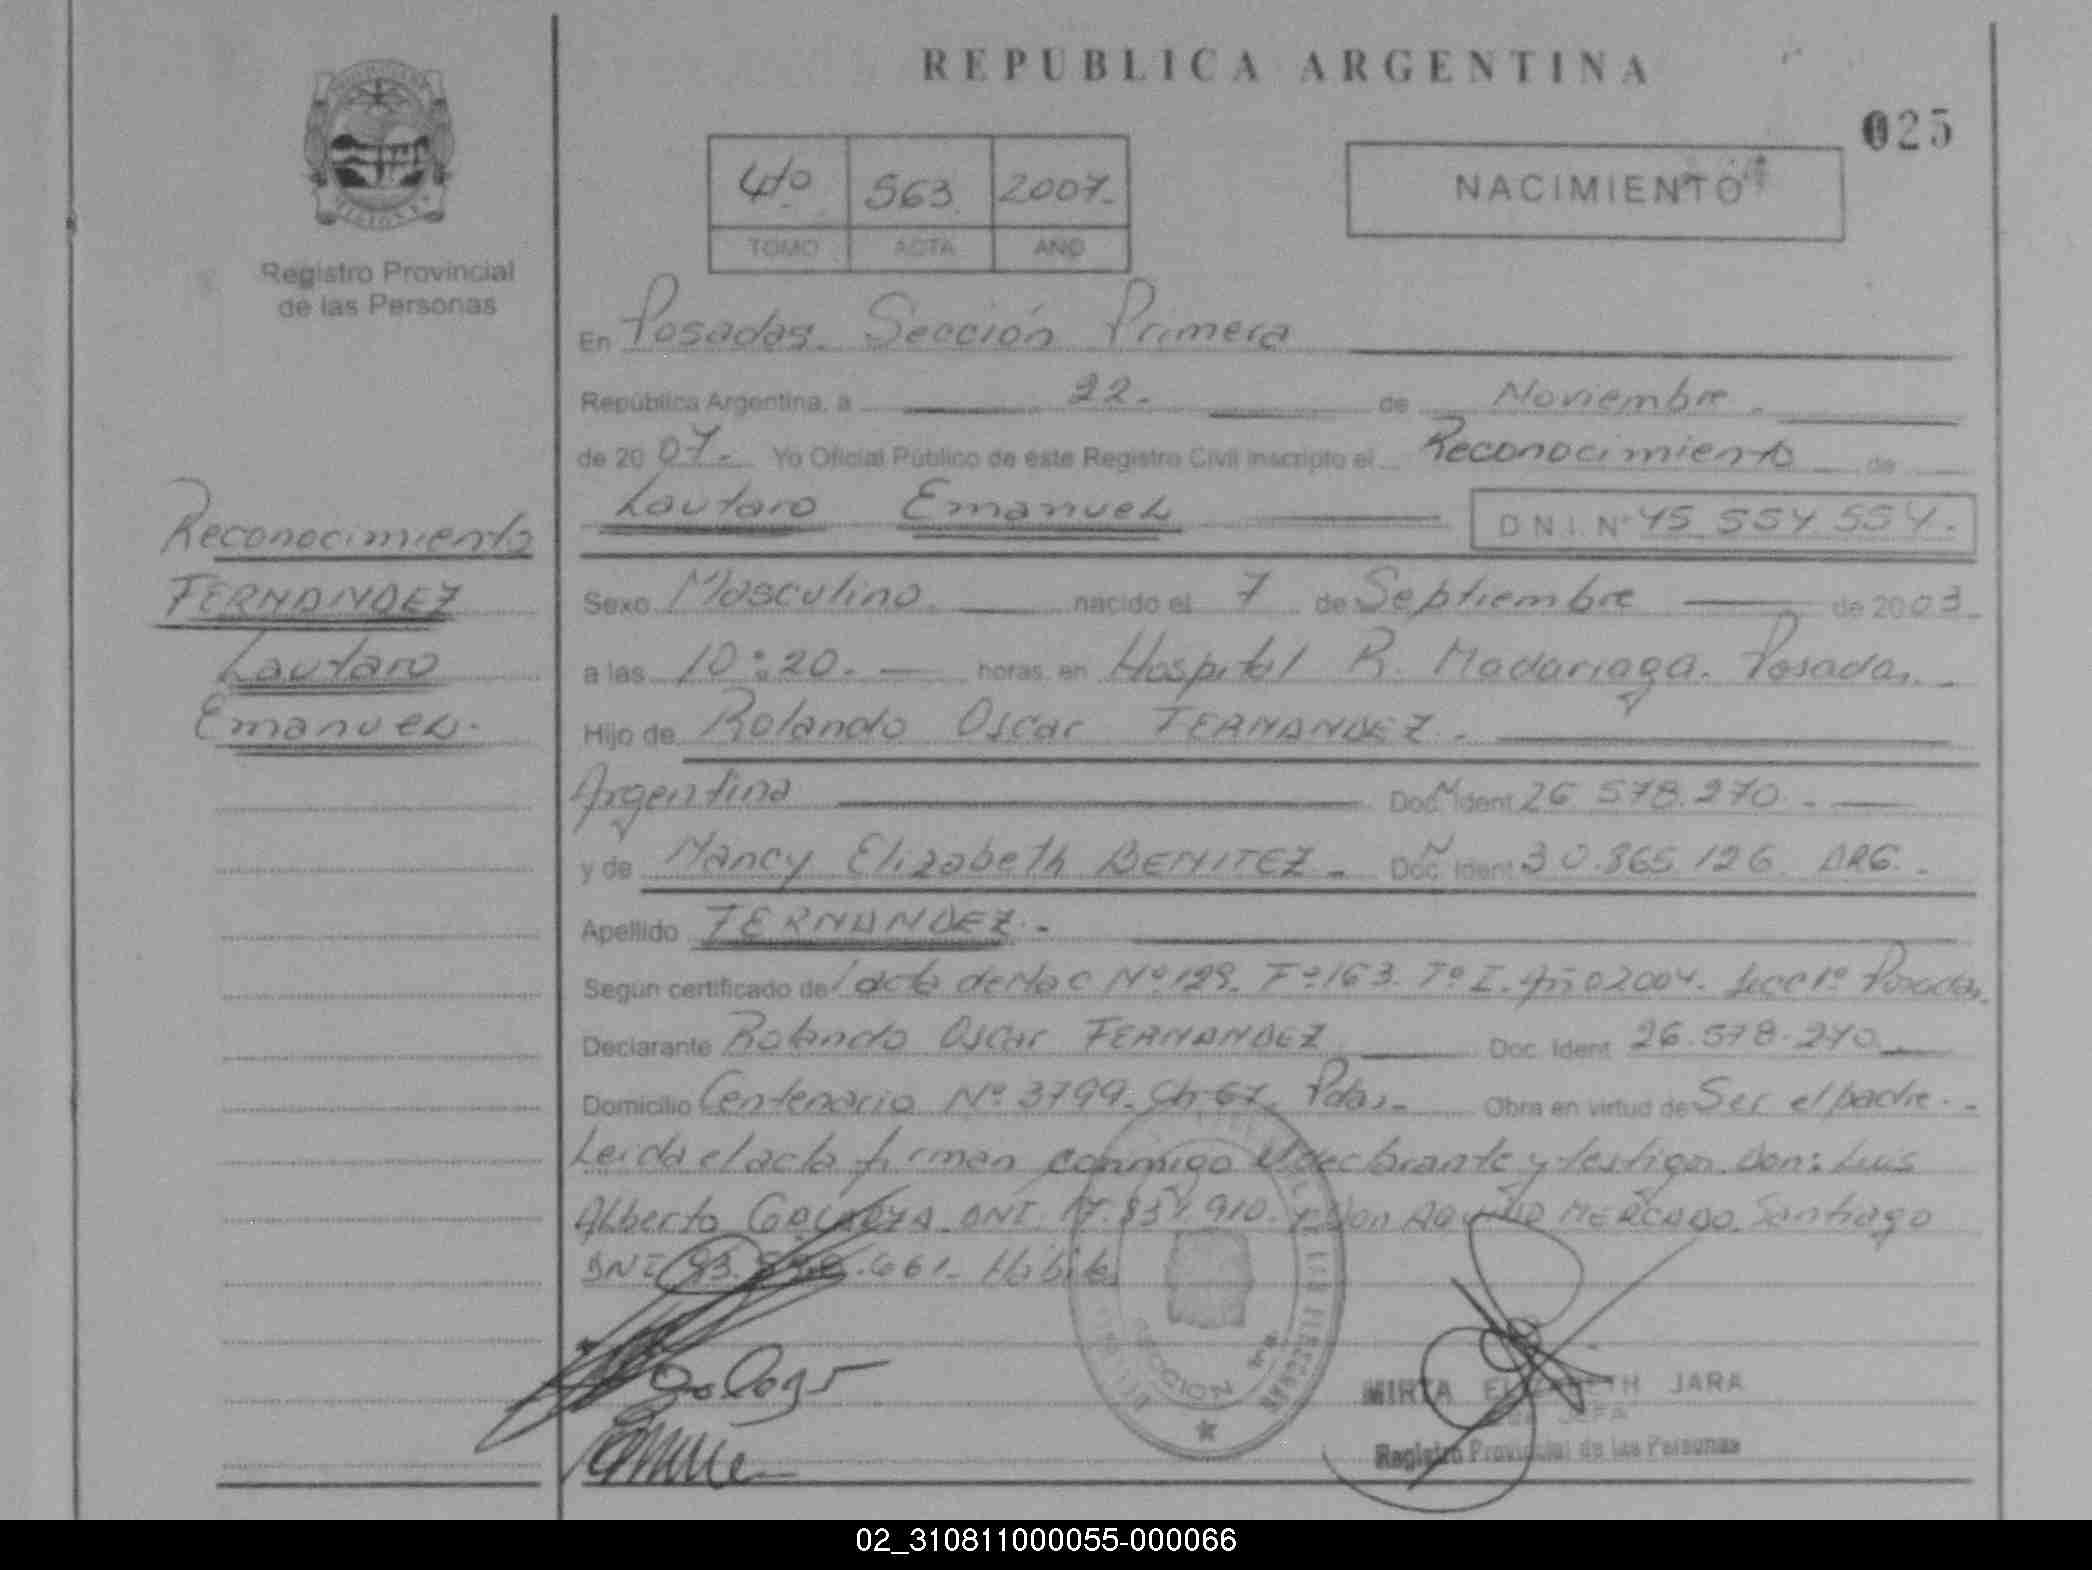 REPUBLICA ARGENTINA
025
4to 563. 2007.
TOMO ACTA AÑO
NACIMIENTO
Registro Provincial
de las Personas
En Posadas. Sección Primera
República Argentina, a 22. de Noviembre.
de 2007. Yo Oficial Público de este Registro Civil inscripto el Reconocimiento de
Lautaro Emanuel D.N.I. Nº 45.554.554.
Reconocimiento
FERNANDEZ
Lautaro
Emanuel.
Sexo Masculino. nacido el 7 de Septiembre de 2003.
a las 10:20. horas, en Hospital R. Madariaga. Posadas.
Hijo de Rolando Oscar FERNANDEZ.
Argentina Doc. Ident 26.578.270.
y de Nancy Elizabeth BENITEZ. Doc. Ident 30.865.126. ARG.
Apellido FERNANDEZ.
Según certificado de acta de Nac Nº 129. Fº 163. Tº I. Año 2004. Secc 1º Posadas.
Declarante Rolando Oscar FERNANDEZ Doc. Ident 26.578.270
Domicilio Centenario Nº 3799. Ch 67. Pdas. Obra en virtud de Ser el padre.
Leida el acta firman conmigo el declarante y testigos. Don: Luis
Alberto DNI. 910. y Don MERCADO. Santiago
DNI 93. .661.
SECCION 1ra
MIRTA ELIZABETH JARA
JEFA
Registro Provincial de las Personas
02_310811000055-000066